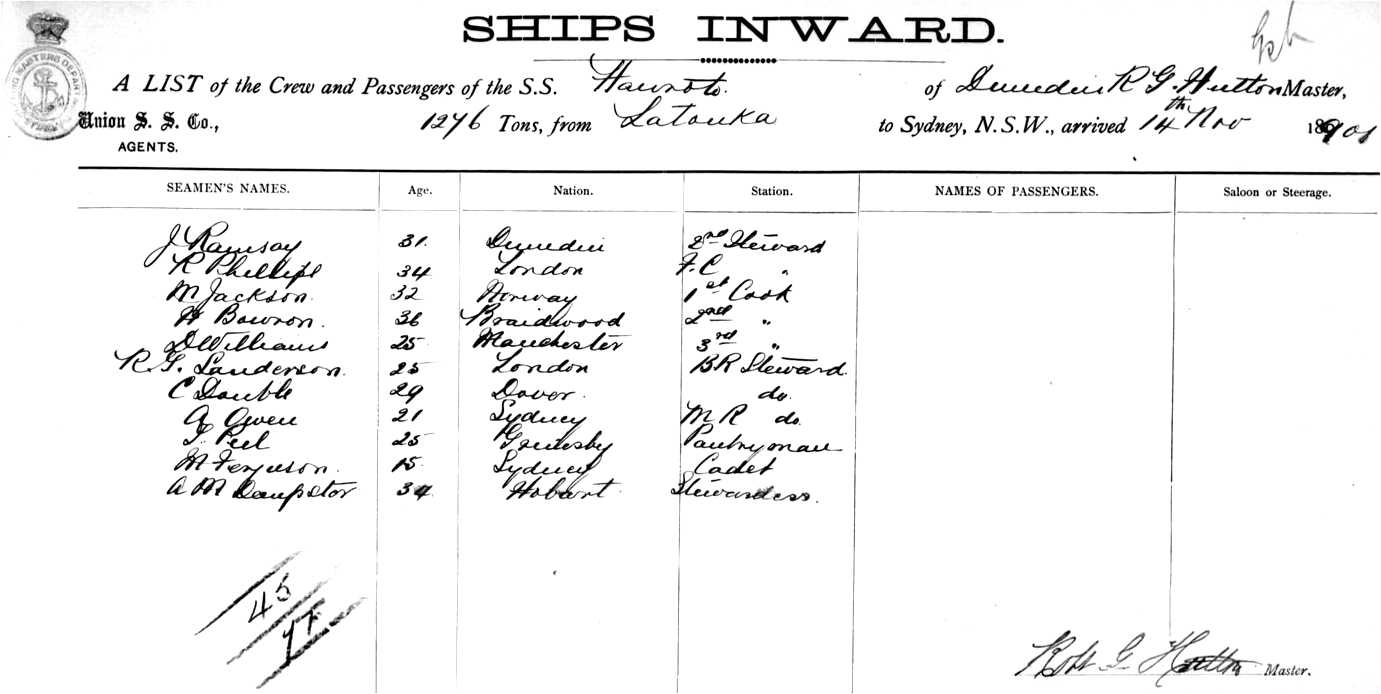 SHIPS INWARD.
A LIST of the Crew and Passengers of the S.S. Hauroto of Dunedin R G. Hutton Master,
Union S. S. Co., 1276 Tons, from Latouka to Sydney, N.S.W., arrived 14th Nov 1901
AGENTS.
SEAMEN'S NAMES. Age. Nation. Station. NAMES OF PASSENGERS. Saloon or Steerage.
J Ramsay 31. Dunedin 2nd Steward
R Phillips 34 London F. C "
M Jackson. 32 Norway 1st Cook
H Bowron. 36 Braidwood 2nd "
D Williams 25 Manchester 3rd "
R. G. Sanderson. 25 London BR Steward.
C Double 29 Dover. do.
A Owen 21 Sydney M R do.
Peel 25 Grimsby Pantryman
M Ferguson. 15. Sydney Cadet
A M Dempster 34. Hobart. Stewardess.
45
17
Robt G Hutton Master.